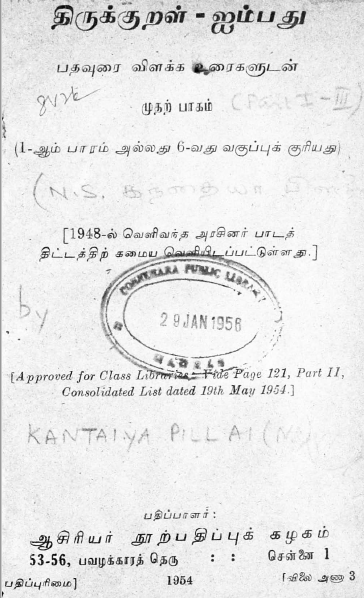 திருக்குறள் - ஐம்பது
பதவுரை விளக்க உரைகளுடன்
முதற் பாகம்
(Part I - III)
(1-ஆம் பாரம் அல்லது 6-வது வகுப்புக் குரியது)
(N.S.
[1948-ல் வெளிவந்த அரசினர் பாடத்
திட்டத்திற் கமைய வெளியிடப்பட்டுள்ளது.]
CONNEMARA PUBLIC LIBRARY
29 JAN 1956
MADRAS
by
[Approved for Class Libraries. Vide Page 121, Part II,
Consolidated List dated 19th May 1954.]
KANTAIYA PILLAI (N.S)
பதிப்பாளர்:
ஆசிரியர் நூற்பதிப்புக் கழகம்
53-56, பவழக்காரத் தெரு : : சென்னை 1
பதிப்புரிமை] 1954 [விலை அணா 3